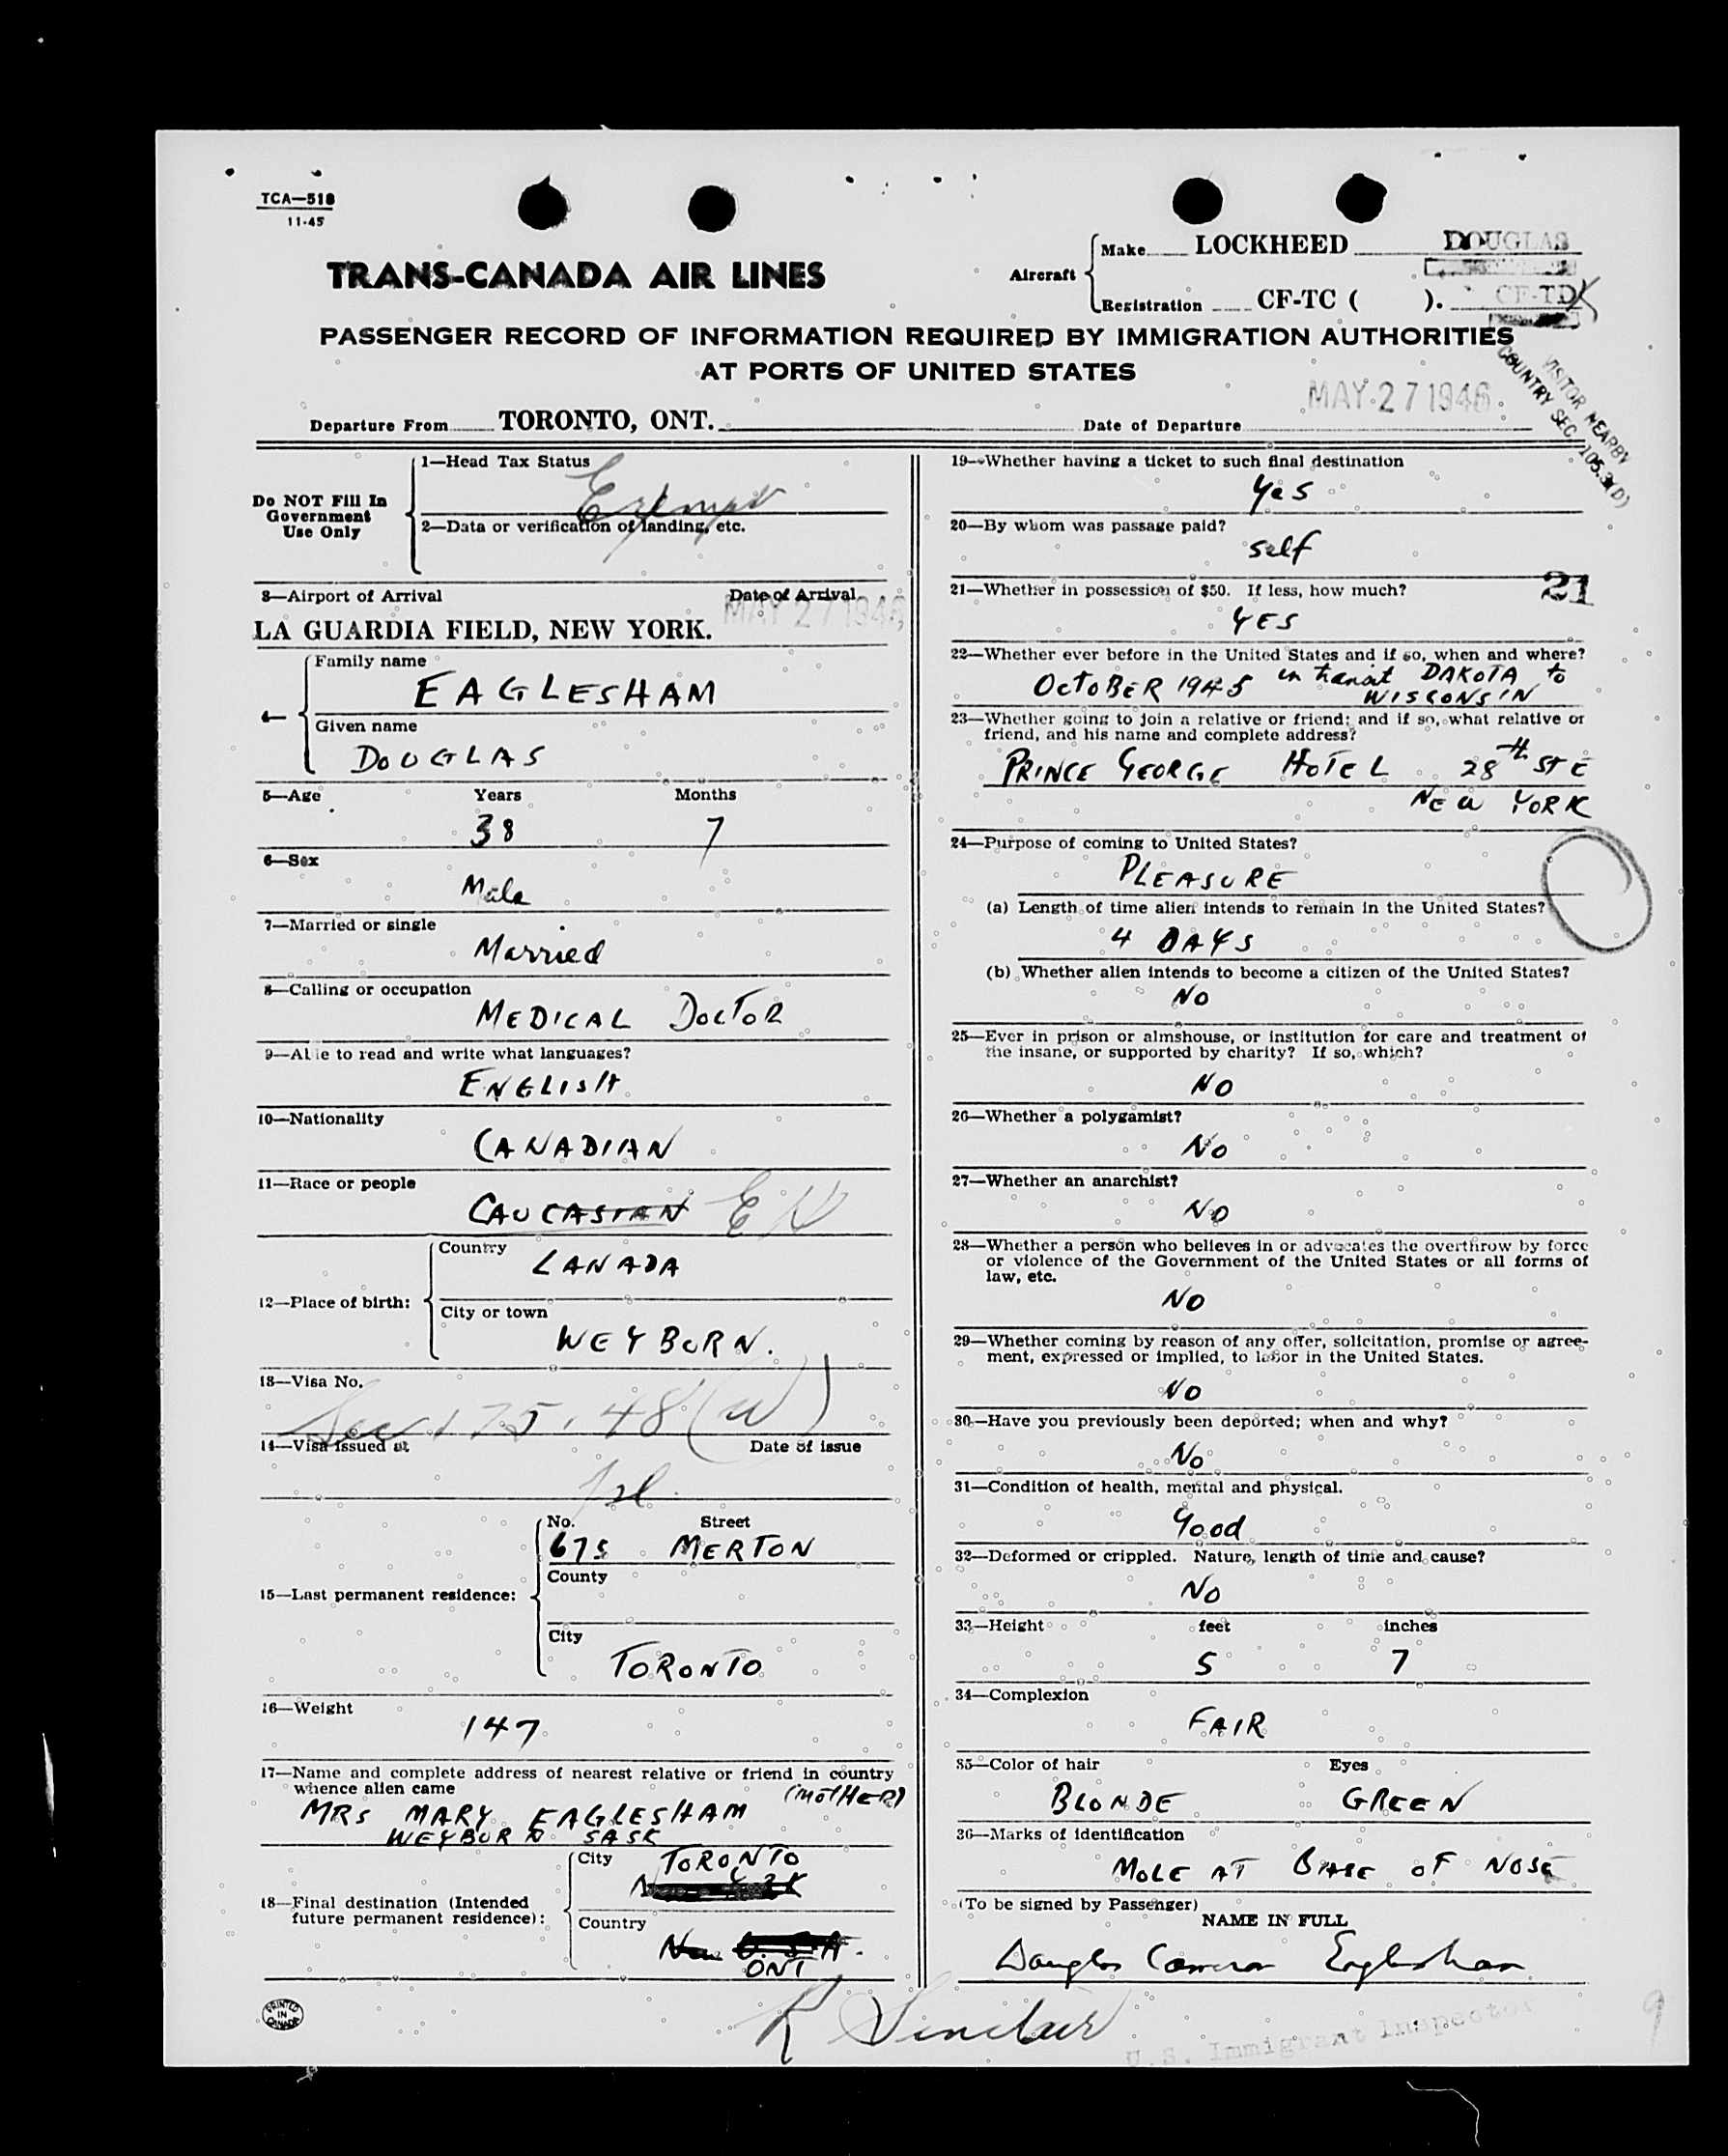 TCA—518
11-45
TRANS-CANADA AIR LINES
Aircraft
Make LOCKHEED DOUGLAS
Registration CF-TC ( ). CF-TDX
PASSENGER RECORD OF INFORMATION REQUIRED BY IMMIGRATION AUTHORITIES
AT PORTS OF UNITED STATES
VISITOR NEARBY
COUNTRY SEC 105.3(D)
Departure From TORONTO, ONT. Date of Departure MAY 27 1946
Do NOT Fill In
Government
Use Only
1—Head Tax Status
Exempt
2—Data or verification of landing, etc.
3—Airport of Arrival Date of Arrival
LA GUARDIA FIELD, NEW YORK. MAY 27 1946
4—
Family name
EAGLESHAM
Given name
DOUGLAS
5—Age Years Months
38 7
6—Sex
Male
7—Married or single
Married
8—Calling or occupation
MEDICAL DOCTOR
9—Able to read and write what languages?
ENGLISH
10—Nationality
CANADIAN
11—Race or people
CAUCASIAN
12—Place of birth:
Country
CANADA
City or town
WEYBURN.
13—Visa No.
Sec 175.48 (w)
14—Visa issued at Date of issue
15—Last permanent residence:
No. Street
675 MERTON
County
City
TORONTO
16—Weight
147
17—Name and complete address of nearest relative or friend in country
whence alien came
(MOTHER)
MRS MARY EAGLESHAM
WEYBURN SASK
18—Final destination (Intended
future permanent residence):
City TORONTO
Country
U.S.A.
ONT
PRINTED
IN
CANADA
19—Whether having a ticket to such final destination
Yes
20—By whom was passage paid?
self
21
21—Whether in possession of $50. If less, how much?
YES
22—Whether ever before in the United States and if so, when and where?
OCTOBER 1945 in transit DAKOTA to
WISCONSIN
23—Whether going to join a relative or friend; and if so, what relative or
friend, and his name and complete address?
PRINCE GEORGE HOTEL 28th ST E
NEW YORK
24—Purpose of coming to United States?
PLEASURE
(a) Length of time alien intends to remain in the United States?
4 DAYS
(b) Whether alien intends to become a citizen of the United States?
NO
25—Ever in prison or almshouse, or institution for care and treatment of
the insane, or supported by charity? If so, which?
NO
26—Whether a polygamist?
No
27—Whether an anarchist?
NO
28—Whether a person who believes in or advocates the overthrow by force
or violence of the Government of the United States or all forms of
law, etc.
NO
29—Whether coming by reason of any offer, solicitation, promise or agree-
ment, expressed or implied, to labor in the United States.
NO
30—Have you previously been deported; when and why?
No
31—Condition of health, mental and physical.
Good
32—Deformed or crippled. Nature, length of time and cause?
No
33—Height feet inches
5 7
34—Complexion
FAIR
35—Color of hair Eyes
BLONDE GREEN
36—Marks of identification
MOLE AT BASE OF NOSE
(To be signed by Passenger)
NAME IN FULL
Douglas Cameron Eaglesham
R Sinclair
U.S. Immigrant Inspector
9